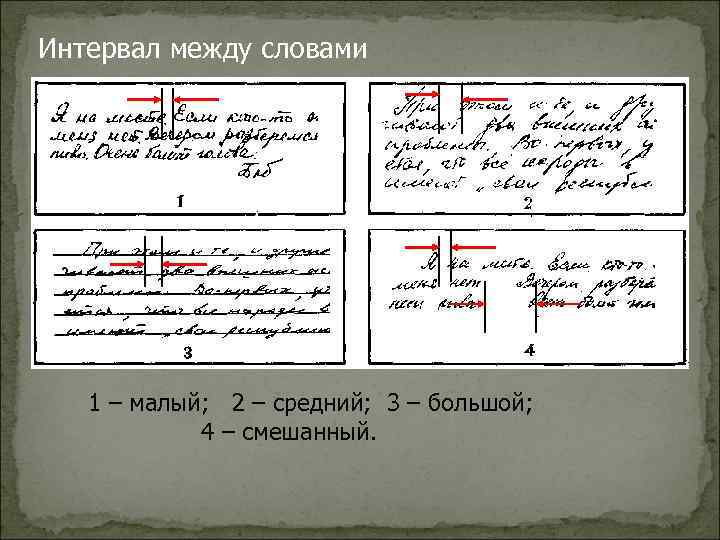 Интервал между словами
Я на месте. Если кто-то
меня нет. Вечером разберемся
пиво. Очень болит голова.
1
При этом и те и дру
два внешних
проблемы. Во-первых, у
что все народы в
имеют свои республ
2
При этом и те, и другие
два внешних ас
проблемы. Во-первых,
что все народы в
имеют свои республики
3
Я на месте. Если кто-то
меня нет Вечером разбере
пива болит
4
1 – малый; 2 – средний; 3 – большой;
4 – смешанный.